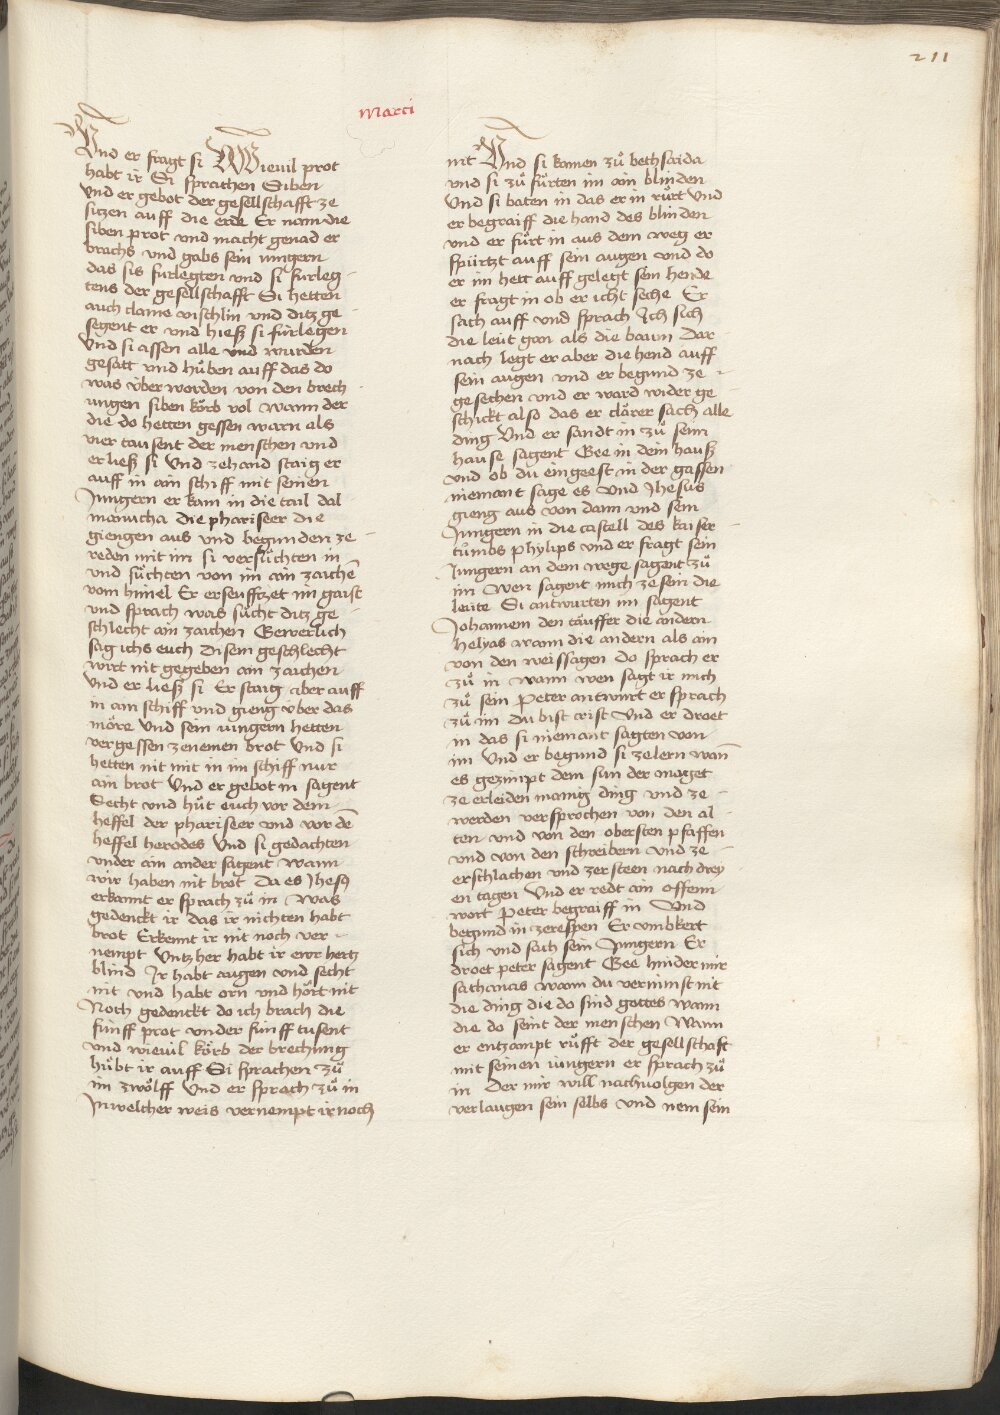 211
Marci
Und er fragt si Wieuil prot
habt ir Si sprachen Siben
Und er gebot der gesellschafft ze
sitzen auff die erde Er nam die
siben prot vnd macht genad er
brachs vnd gabs sein iungern
das sis furlegten vnd si furleg-
tens der gesellschafft Si hetten
auch claine vischlin vnd ditz ge-
segent er vnd hieß si fürlegen
Und si assen alle vnd wurden
gesatt vnd hůben auff das do
was über worden von den brech-
ungen siben körb vol wann der
die do hetten gessen warn als
vier tausent der menschen vnd
er ließ si Und zehand staig er
auff in ain schiff mit seinen
Jungern er kam in die tail dal-
manucha die phariseer die
giengen aus vnd begunden ze-
reden mit im si versůchten in
vnd sůchten von im ain zaichē
vom himel Er erseufftzet im gaist
vnd sprach was sůcht ditz ge-
schlecht ain zaichen Gewerlich
sag ichs euch disem geschlecht
wirt nit gegeben ain zaichen
Und er ließ si Er staig aber auff
in ain schiff vnd gieng vber das
möre Und sein iungern hetten
vergessen zenemen brot Und si
hetten nit mit in im schiff nur
ain brot Und er gebot in sagent
Secht vnd hůt euch vor dem
heffel der phariseer vnd vor dē
heffel herodes Und si gedachten
vnder ain ander sagent wann
wir haben nit brot Da es Jhesq
erkannt er sprach zů in Was
gedenckt ir das ir nichten habt
brot Erkennt ir nit noch ver-
nempt Untz her habt ir ewr hertz
blind Jr habt augen vnd secht
nit vnd habt orn vnd hört nit
Noch gedenckt do ich brach die
fünff prot vnder fünff tusent
vnd wieuil körb der brechung
hůbt ir auff Si sprachen zů
im zwölff Und er sprach zů in
Jnwelcher weis vernempt ir noch
nit Und si kamen zů bethsaida
vnd si zů fůrten im ain blinden
Und si baten in das er in růrt Und
er begraiff die hand des blinden
vnd er fůrt in aus dem weg er
spürtzt auff sein augen vnd do
er im hett auff gelegt sein hende
er fragt in ob er icht seche Er
sach auff vnd sprach Jch sich
die leüt gan als die baum Dar-
nach legt er aber die hend auff
sein augen vnd er begund ze-
gesechen vnd er ward wider ge
schickt also das er clärer sach alle
ding Und er sandt in zů seim
hause sagent Gee in dein hauß
vnd ob du eingeest in der gassen
niemant sage es Und Jhesus
gieng aus von dann vnd sein
Jungern in die castell des kaiser-
tůmbs phylips vnd er fragt sein
Jungern an dem wege sagent zů
im Wen sagent mich ze sein die
leüte Si antwurten im sagent
Johannem den täuffer die andern
helyas wann die andern als ain
von den weissagen do sprach er
zů in wann wen sagt ir mich
zů sein Peter antwurt er sprach
zů im du bist crist Und er droet
in das si niemant sagten von
im Und er begund si zelern wañ
es gezimpt dem sun der maget
ze erleiden manig ding vnd ze-
werden versprochen von den al-
ten vnd von den obersten pfaffen
vnd von den schreibern vnd ze-
erschlachen vnd zersteen nach drey
en tagen Und er redt ain offenn
wort Peter begraiff in Und
begund in zerespen Er vmbkert
sich vnd sach sein Jungern Er
droet peter sagent Gee hinder mir
sathanas wann du vernimst nit
die ding die do sind gottes wann
die do seint der menschen Wann
er entzampt růfft der gesellschaft
mit seinen iungern er sprach zů
in Der mir will nachuolgen der
verlaugen sein selbs vnd nem sein